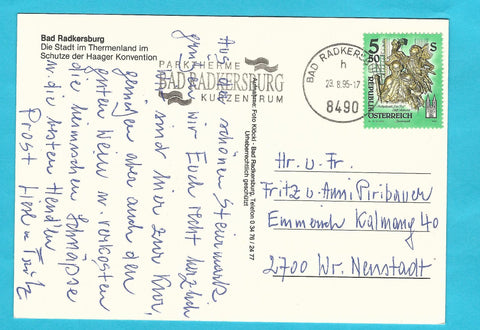 Bad Radkersburg
Die Stadt im Thermenland im
Schutze der Haager Konvention
PARKTHERME
BAD RADKERSBURG
KURZENTRUM
BAD RADKERSBURG
h
29.8.95-17
8490
5
50
S
REPUBLIK
ÖSTERREICH
Aus der schönen Steiermark
grüßen wir Euch recht herzlich
sind hier zur Kur,
genießen aber auch den
guten Wein u. verkosten
die heimischen Schnäpse
u. die besten Hendln
Prost
Aufnahme: Foto Klöcki · Bad Radkersburg, Telefon 0 34 76 / 24 77
Urheberrechtlich geschützt
Hr. u. Fr.
Fritz u. Anni Piribauer
Emmerich Kálmáng 40
2700 Wr. Neustadt